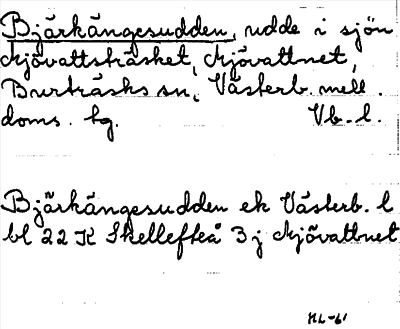 Bjärkängesudden, udde i sjön
Mjövattsträsket, Mjövattnet,
Burträsks sn, Västerb. mell.
doms. hg. Vb. l.
Bjärkängesudden ek Västerb. l
bl 22 K Skellefteå 3 j Mjövattnet
HL-61